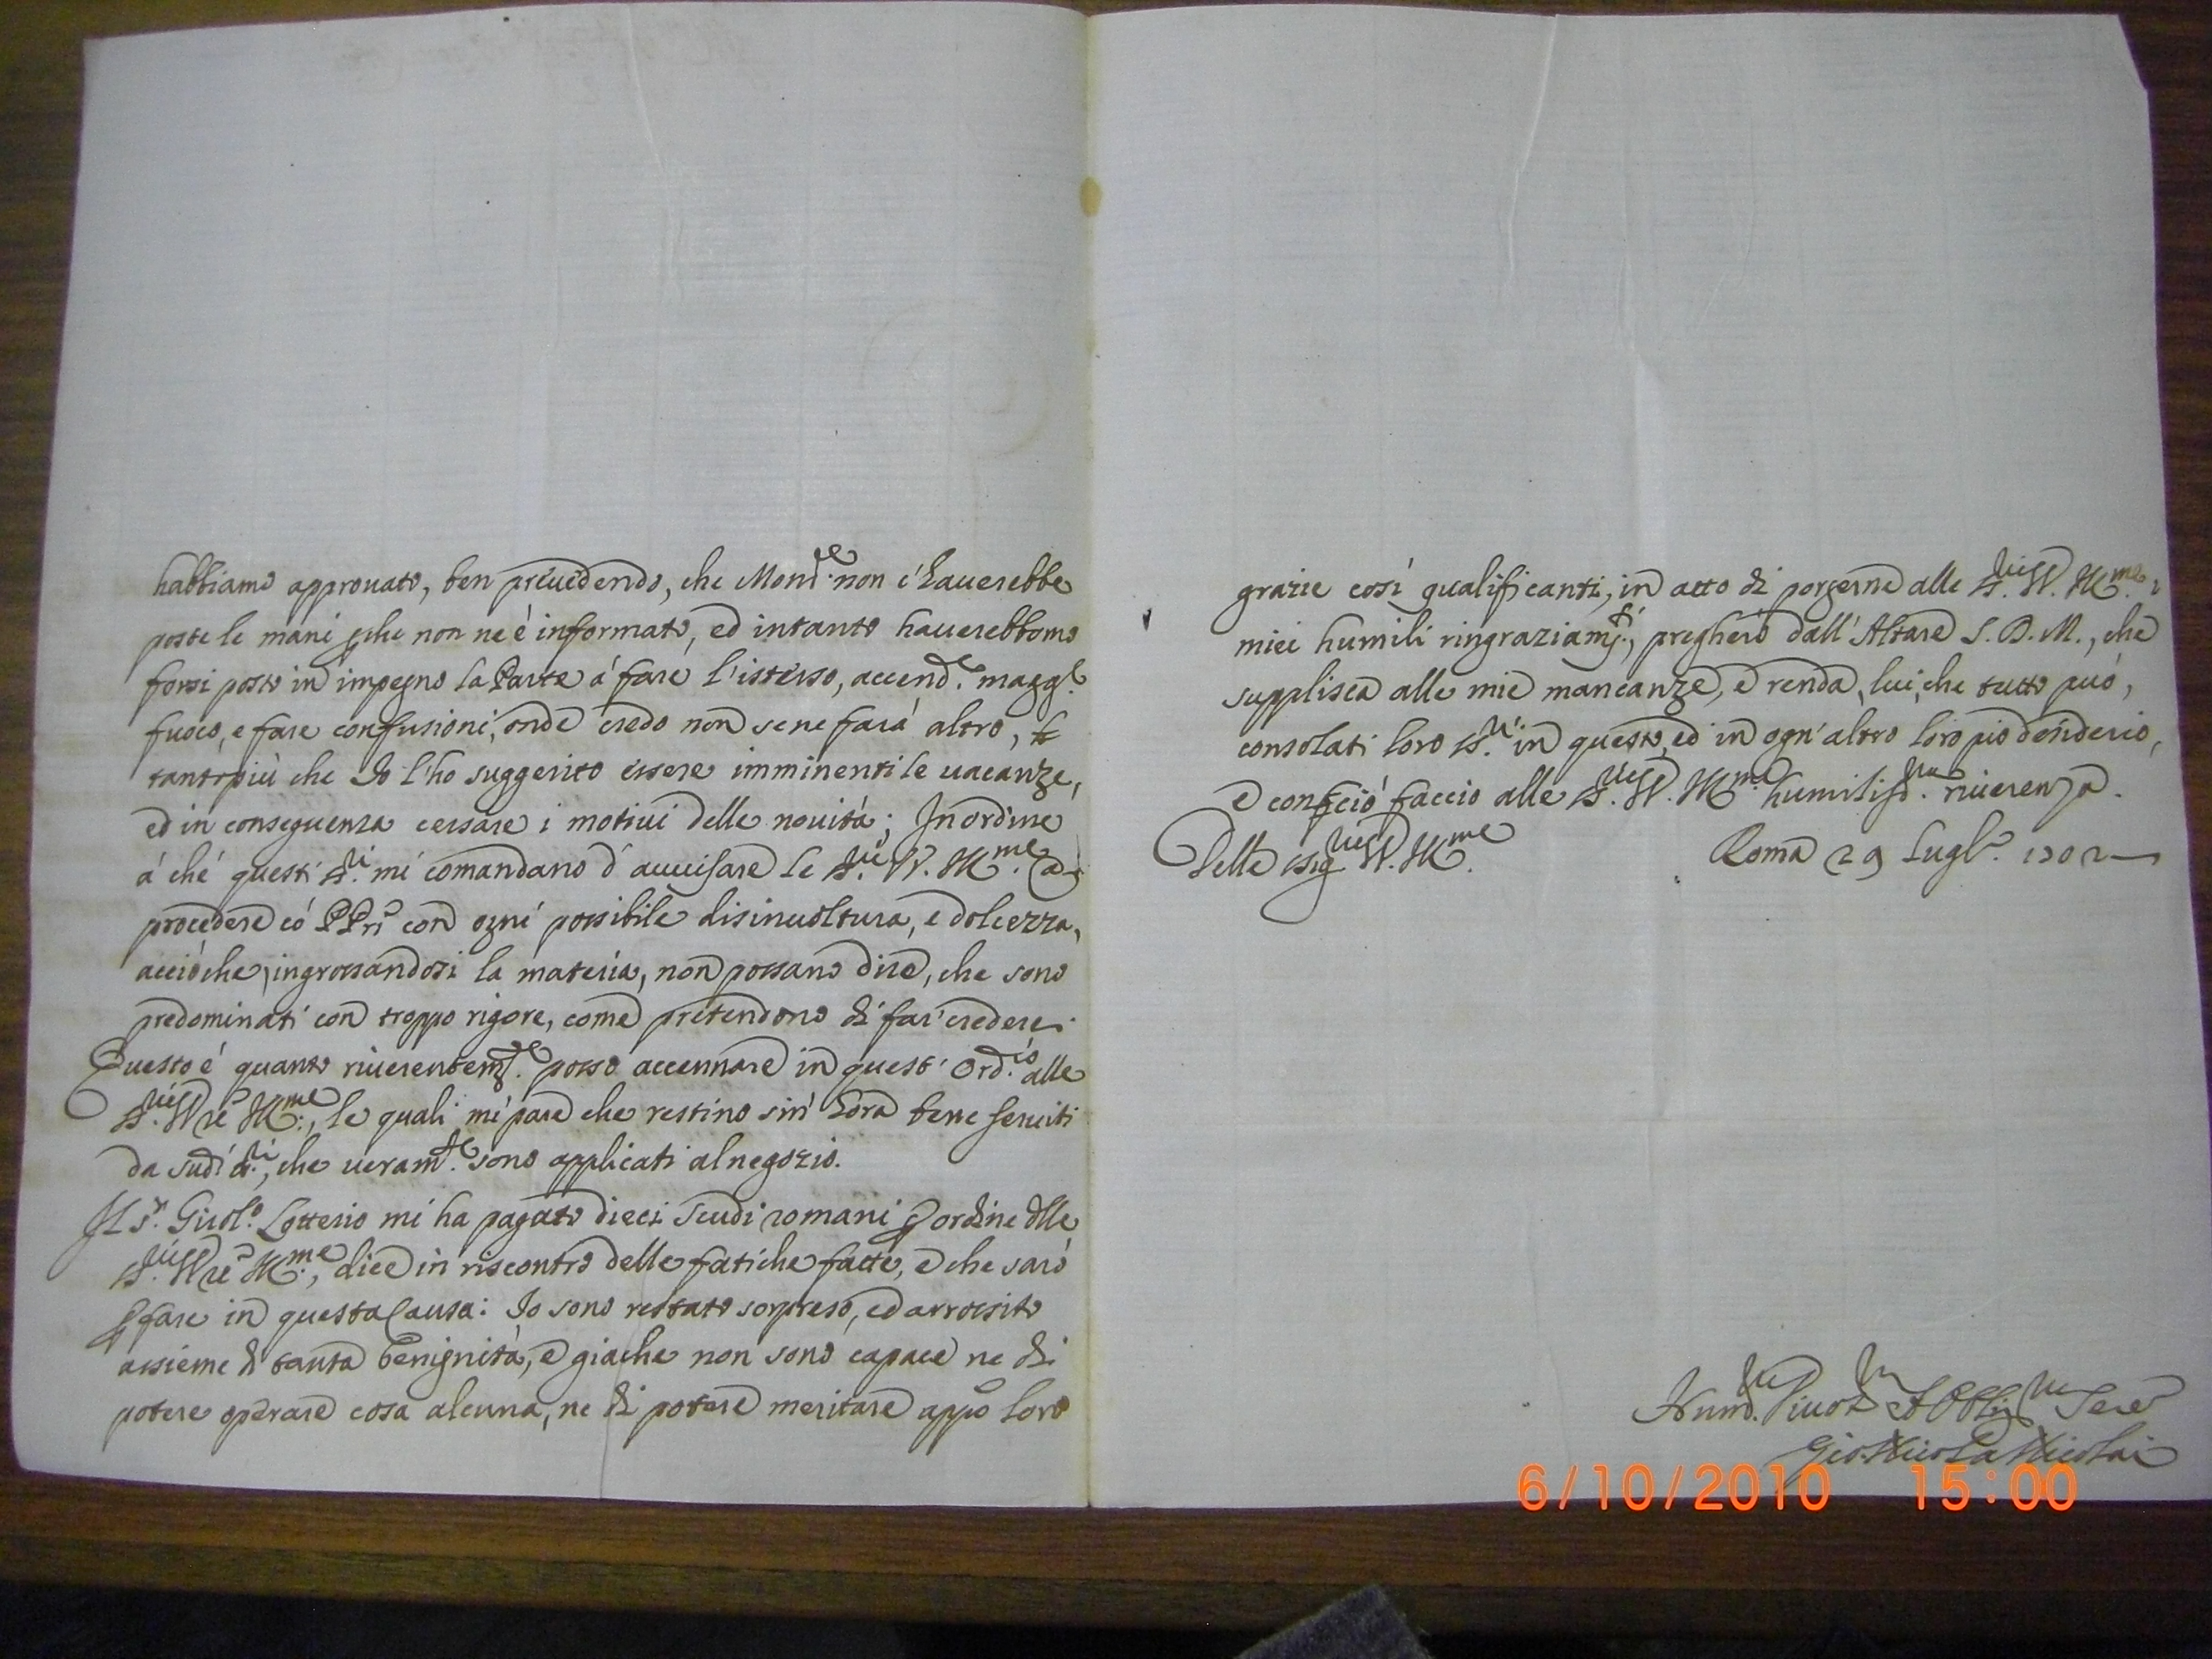 habbiamo approuato, ben preuedendo, che Mons.re non c'hauerebbe
poste le mani p che non ne è informato, ed intanto hauerebbomo
forsi posto in impegno la Parte á fare l'istesso, accend.e magg.r
fuoco, e fare confusioni, onde credo non se ne fará altro,
tanto più che Io l'ho suggerito essere imminenti le uacanze,
ed in conseguenza cessare i motiui delle nouitá; In ordine
á ché questi SS.ri mi comandano d'auuisare le SS.rie VV. Ill.me á
procedere có PPri con ogni possibile disinuoltura, e dolcezza,
acció che, ingrossandosi la materia, non possano dire, che sono
predominati con troppo rigore, come pretendono di far' credere.
Questo é quanto riuerentem.te posso accennare in quest' Ord.io alle
SS.rie VVre Ill.me, le quali mi pare che restino sin' hora bene seruiti
da sud.i SS.ri, che ueram.te sono applicati al negozio.
Il S.r Girol.o Lotterio mi ha pagato dieci Scudi romani p ordine dlle
SS.rie VVre Ill.me, dice in riscontro delle fatiche fatte, e che saró
p fare in questa Causa: Io sono restato sorpreso, ed arrossito
assieme di tanta benignitá, e giache non sono capace ne di
potere operare cosa alcuna, ne di potere meritare appo loro
grazie cosí qualificanti, in atto di porgerne alle SS.rie VV. Ill.me i
miei humili ringraziam.ti, pregheró dall'Altare S. D. M., che
supplisca alle mie mancanze, e renda, lui, che tutto puó,
consolati loro SS.ri in questo, ed in ogn'altro loro pio desiderio,
e con ció faccio alle SS.rie VV. Ill.me humiliss.ma riuerenza.
Delle Sig.rie VV. Ill.me
Roma 29 Lugl.o 1702
Hum.mo Diuot.mo et Obblig.mo Sere
Gio Nicola Nicolai
6/10/2010 15:00